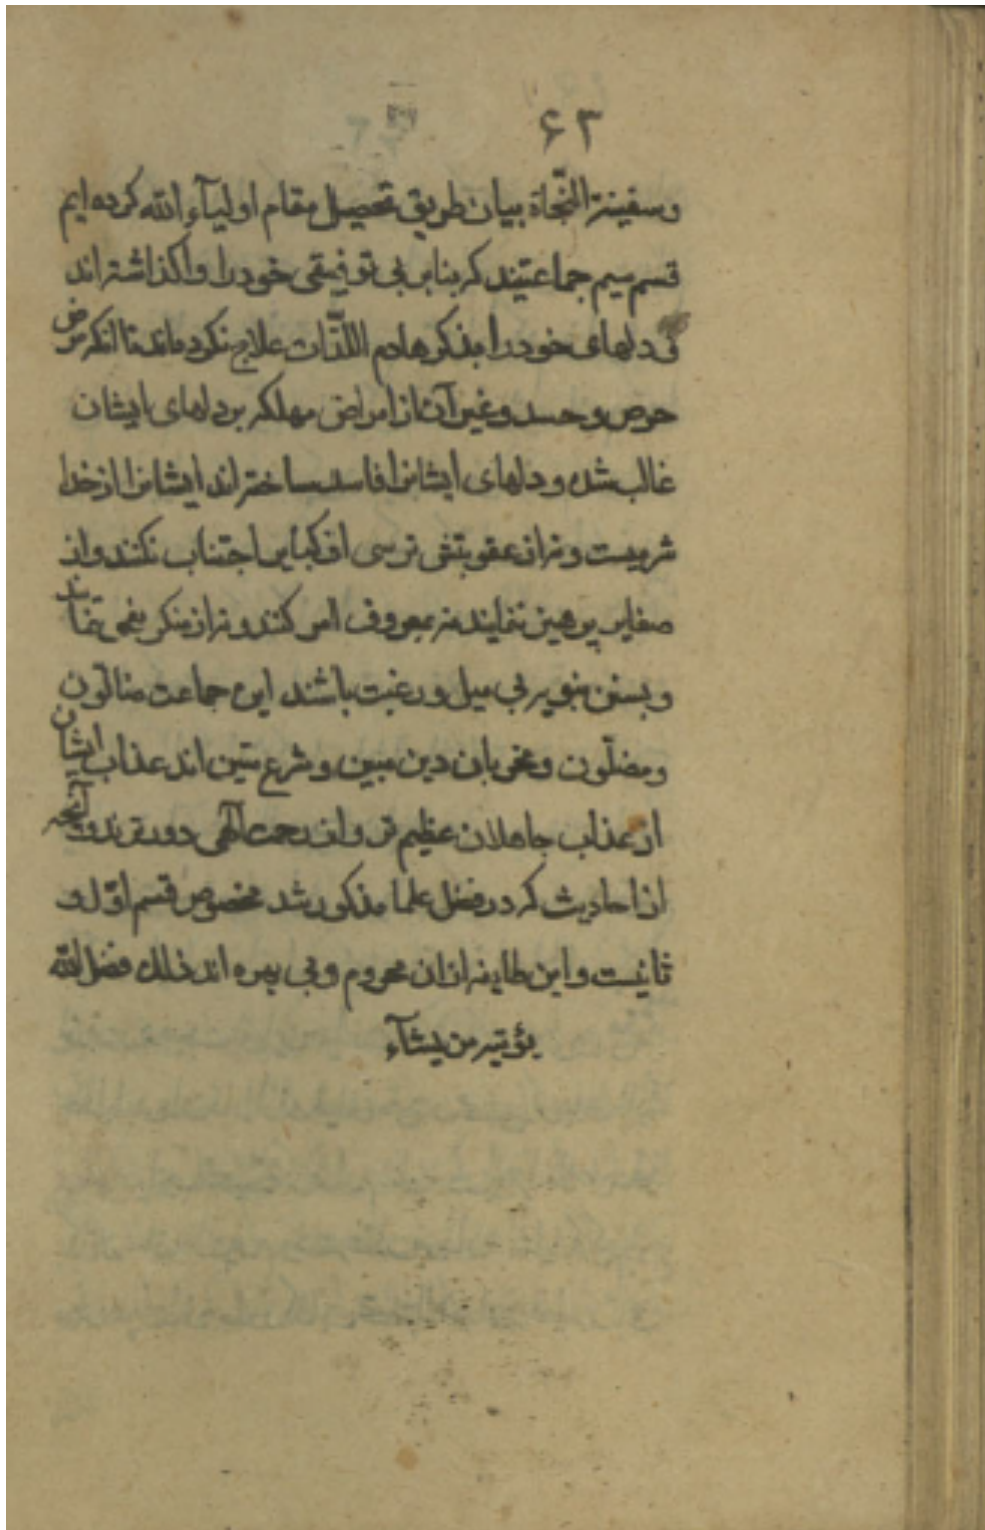 ۶۲
وسفینة النّجاة بیان طریق تحصیل مقام اولیآء الله کرده ایم
قسم سیم جماعتیند که بنابر بی توفیقی خود را واکذاشته اند
و دلهای خود را بذکر هادم اللذّات علاج نکرده اند تا انکه مرض
حرص و حسد و غیر آن از امراض مهلکه بر دلهای ایشان
غالب شده و دلهای ایشانرا فاسد ساخته اند ایشانرا از خدا
شرمیست و نه از عقوبتش ترسی از کبایر اجتناب نکنند و از
صغایر پرهیز ننمایند نه بمعروف امر کنند و نه از منکر نهی نمایند
و بسنن نبویه بی میل و رغبت باشند این جماعت ضالّون
و مضلّون و مخربان دین مبین و شرع متین اند عذاب ایشان
از عذاب جاهلان عظیم تر و از رحمت آلهی دورترند و آنچه
از احادیث که در فضل علما مذکور شد مخصوص قسم اوّل و
ثانیست و این طایفه از ان محروم و بی بهره اند ذلك فضل الله
یؤتیه من یشآء